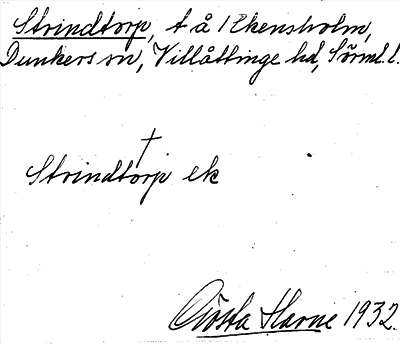 Strindtorp, t å / Ekensholm,
Dunkers sn, Villåttinge hd, Sörml. l.
†
Strindtorp ek
Gösta Harne 1932.